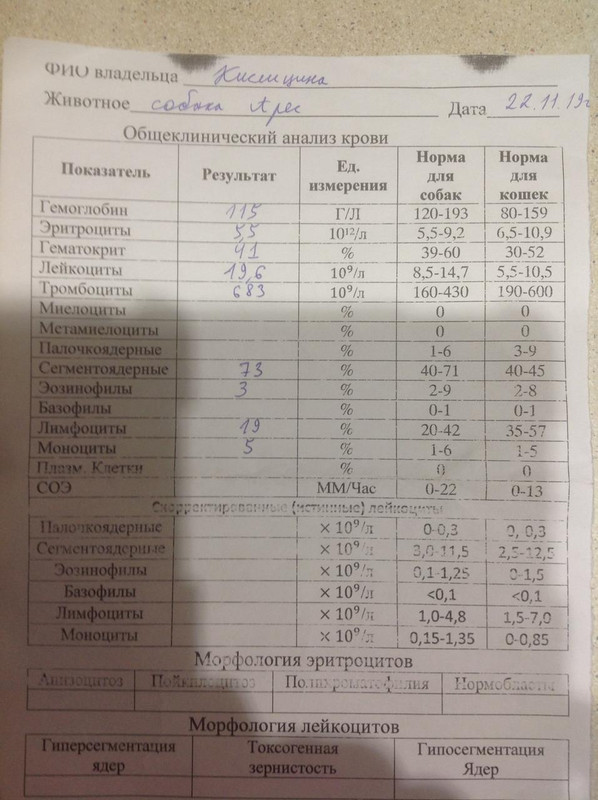 ФИО владельца Кислицина
Животное собака Арес Дата 22.11.19г
Общеклинический анализ крови
Показатель Результат Ед. измерения Норма для собак Норма для кошек
Гемоглобин 115 Г/Л 120-193 80-159
Эритроциты 5,5 10¹²/л 5,5-9,2 6,5-10,9
Гематокрит 41 % 39-60 30-52
Лейкоциты 19,6 10⁹/л 8,5-14,7 5,5-10,5
Тромбоциты 683 10⁹/л 160-430 190-600
Миелоциты % 0 0
Метамиелоциты % 0 0
Палочкоядерные % 1-6 3-9
Сегментоядерные 73 % 40-71 40-45
Эозинофилы 3 % 2-9 2-8
Базофилы % 0-1 0-1
Лимфоциты 19 % 20-42 35-57
Моноциты 5 % 1-6 1-5
Плазм. Клетки % 0 0
СОЭ ММ/Час 0-22 0-13
Скорректированные (истинные) лейкоциты
Палочкоядерные × 10⁹/л 0-0,3 0, 0,3
Сегментоядерные × 10⁹/л 3,0-11,5 2,5-12,5
Эозинофилы × 10⁹/л 0,1-1,25 0-1,5
Базофилы × 10⁹/л <0,1 <0,1
Лимфоциты × 10⁹/л 1,0-4,8 1,5-7,0
Моноциты × 10⁹/л 0,15-1,35 0-0,85
Морфология эритроцитов
Анизоцитоз Пойкилоцитоз Полихроматофилия Нормобласты
Морфология лейкоцитов
Гиперсегментация ядер Токсогенная зернистость Гипосегментация Ядер